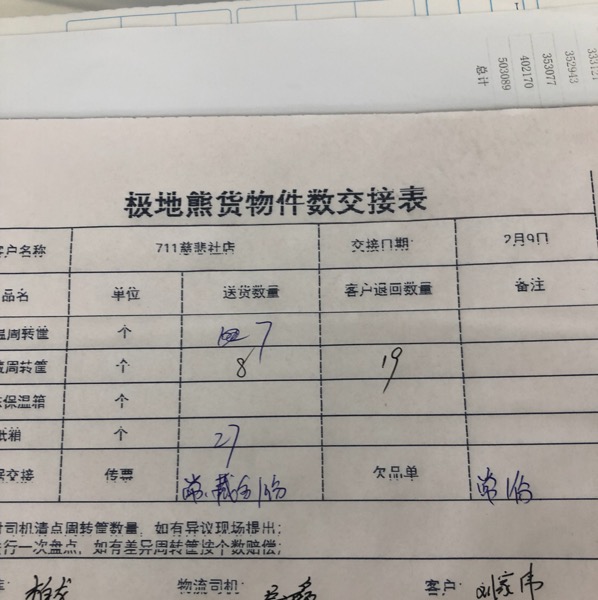 352943
353077
402170
503089
总计
极地熊货物件数交接表
客户名称 711慈悲社店 交接日期: 2月9日
品名 单位 送货数量 客户退回数量 备注
周转筐 个 7
周转筐 个 8 19
保温箱 个
纸箱 个 27
交接 传票 常.藏各1份 欠品单 常1份
司机清点周转筐数量,如有异议现场提出;
行一次盘点,如有差异周转筐按个数赔偿;
物流司机: 客户: 刘家伟